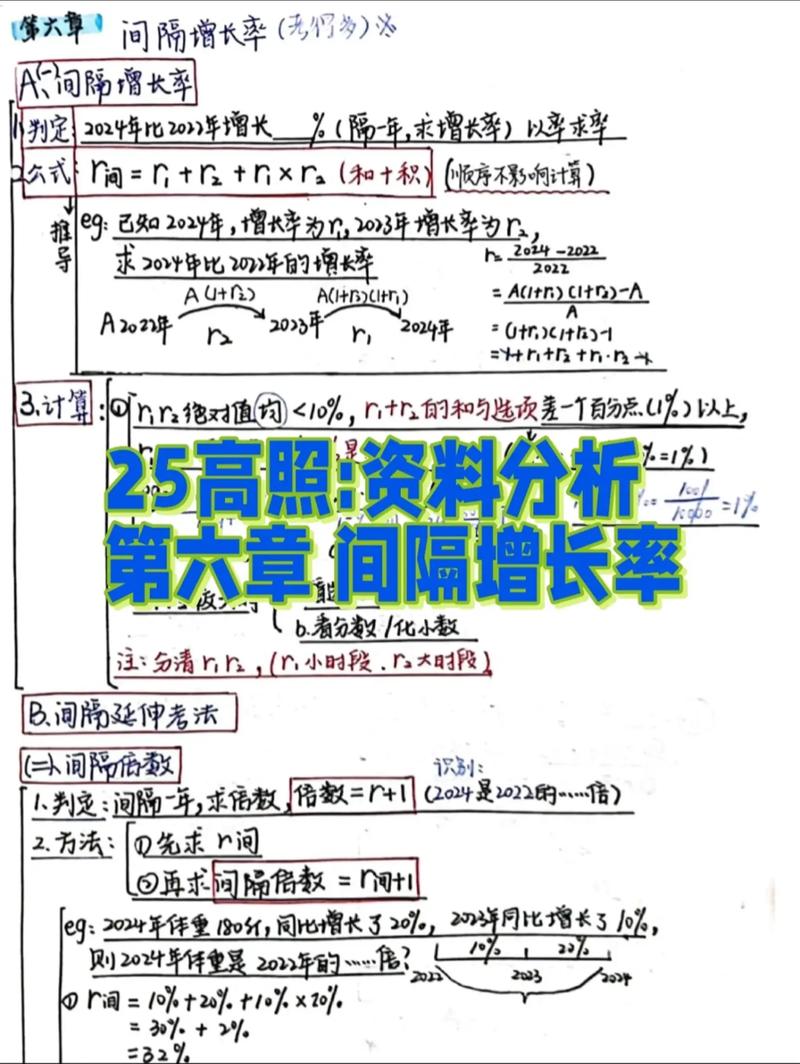 第六章 间隔增长率(考得多)
A(一)、间隔增长率
1.判定:2024年比2022年增长___%(隔一年,求增长率)以率求率
2.公式:r间=r₁+r₂+r₁×r₂(和+积)(顺序不影响计算)
推导
eg:已知2024年,增长率为r₁,2023年增长率为r₂,
求2024年比2022年的增长率
r=2024-2022/2022
A(1+r₂) A(1+r₂)(1+r₁)
=A(1+r₁)(1+r₂)-A/A
A 2022年 r₂ 2023年 r₁ 2024年
=(1+r₁)(1+r₂)-1
=1+r₁+r₂+r₁·r₂-1
3.计算:①r₁r₂绝对值均<10%,r₁+r₂的和与选项差一个百分点(1%)以上,
%=1%)
100/10000=1%
25高照:资料分析
第六章 间隔增长率
b.看分数/化小数
注:分清r₁r₂,(r₁小时段、r₂大时段)
B.间隔延伸考法
(二)、间隔倍数
识别:
1.判定:间隔一年,求倍数,倍数=r+1(2024是2022的……倍)
2.方法:①先求r间
②再求间隔倍数=r间+1
eg:2024年体重180斤,同比增长了20%,2023年同比增长了10%,
则2024年体重是2022年的……倍?
10% 20%
2022 2023 2024
①r间=10%+20%+10%×20%
=30%+2%
=32%